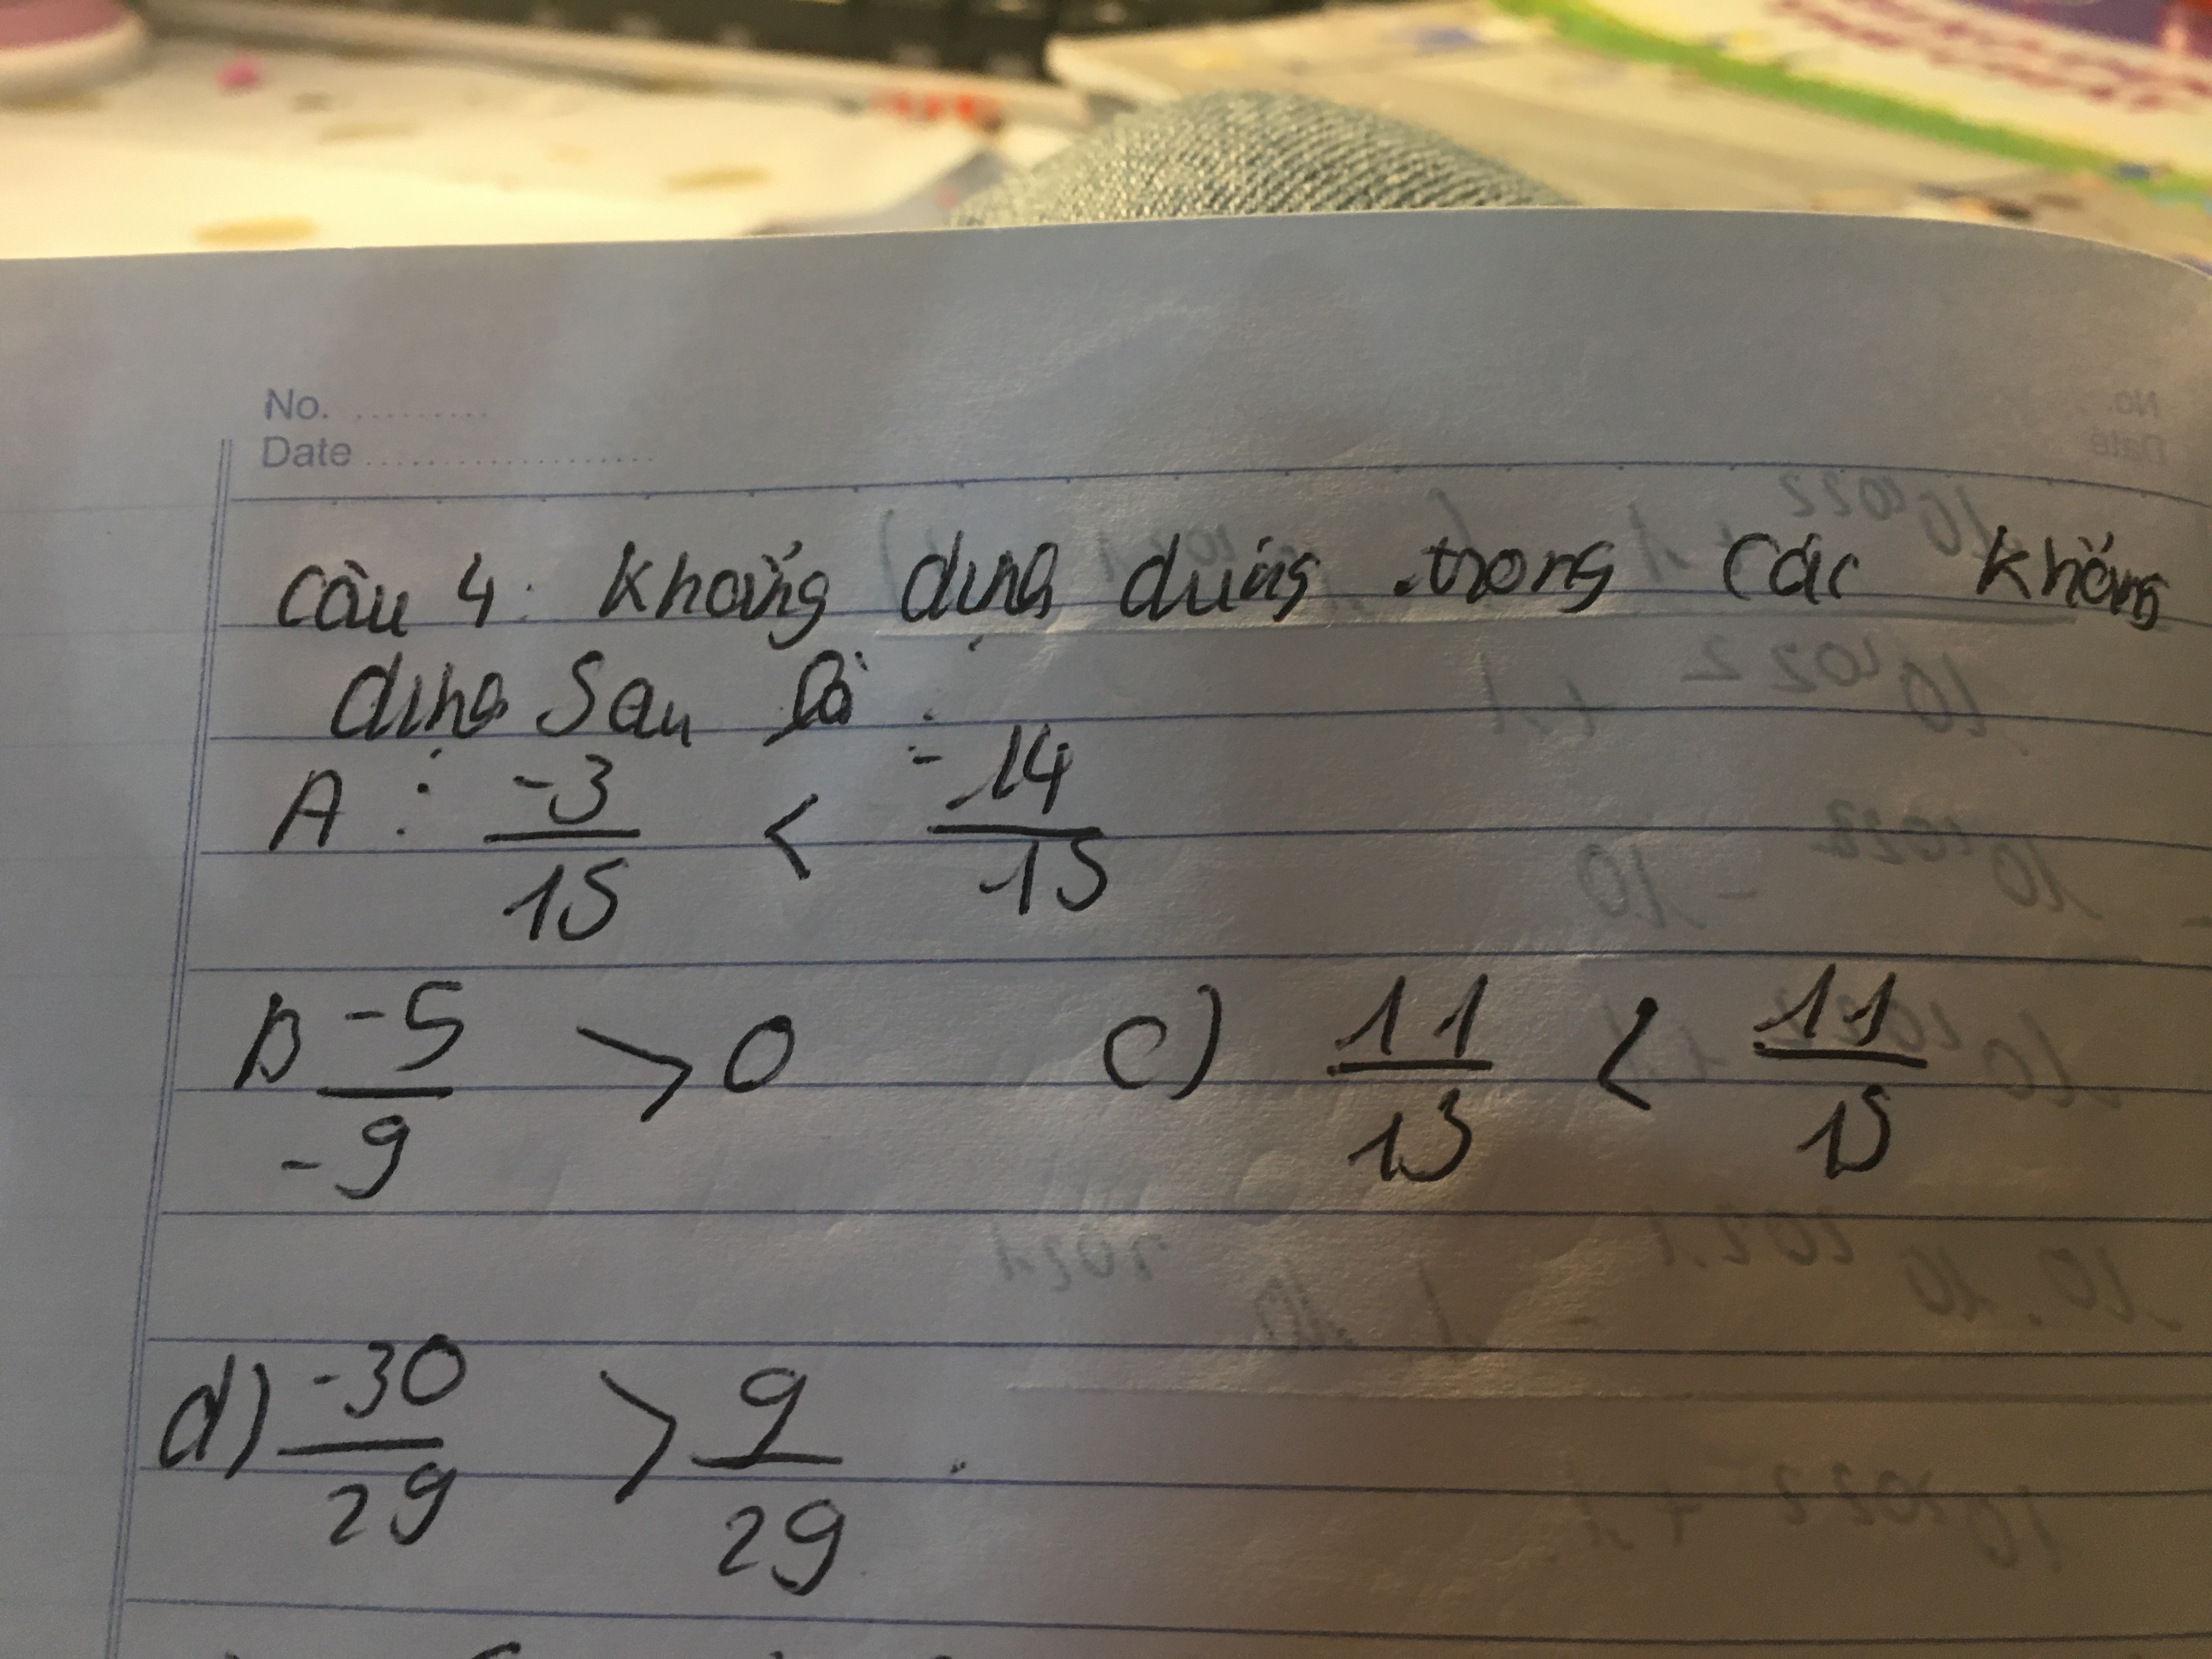 No. ..........
Date ....................
Câu 4: Khẳng định đúng trong các khẳng
định sau là :
A : -3/15 < -14/15
B -5/-9 > 0 c) 11/13 < 11/15
d) -30/29 > 9/29 .